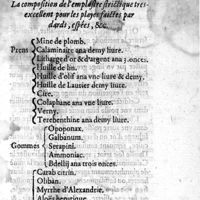 La composition de l'emplastre stricticque tres
excellent pour les playes faictes par
dards, espées, &c.
Mine de plomb.
Prens Calaminaire ana demy liure.
Litharge d'or & d'argent ana 3 onces.
Huille de lin.
Huille d'olif ana vne liure & demy.
Huille de Laurier demy liure.
Cire.
Colaphane ana vne liure.
Verny.
Terebenthine ana demy liure.
Opoponax.
Galbanum.
Gommes Serapini.
Ammoniac.
Bdelij ana trois onces.
Carab citrin.
Oliban.
Myrrhe d'Alexandrie.
Aloës hepatique.